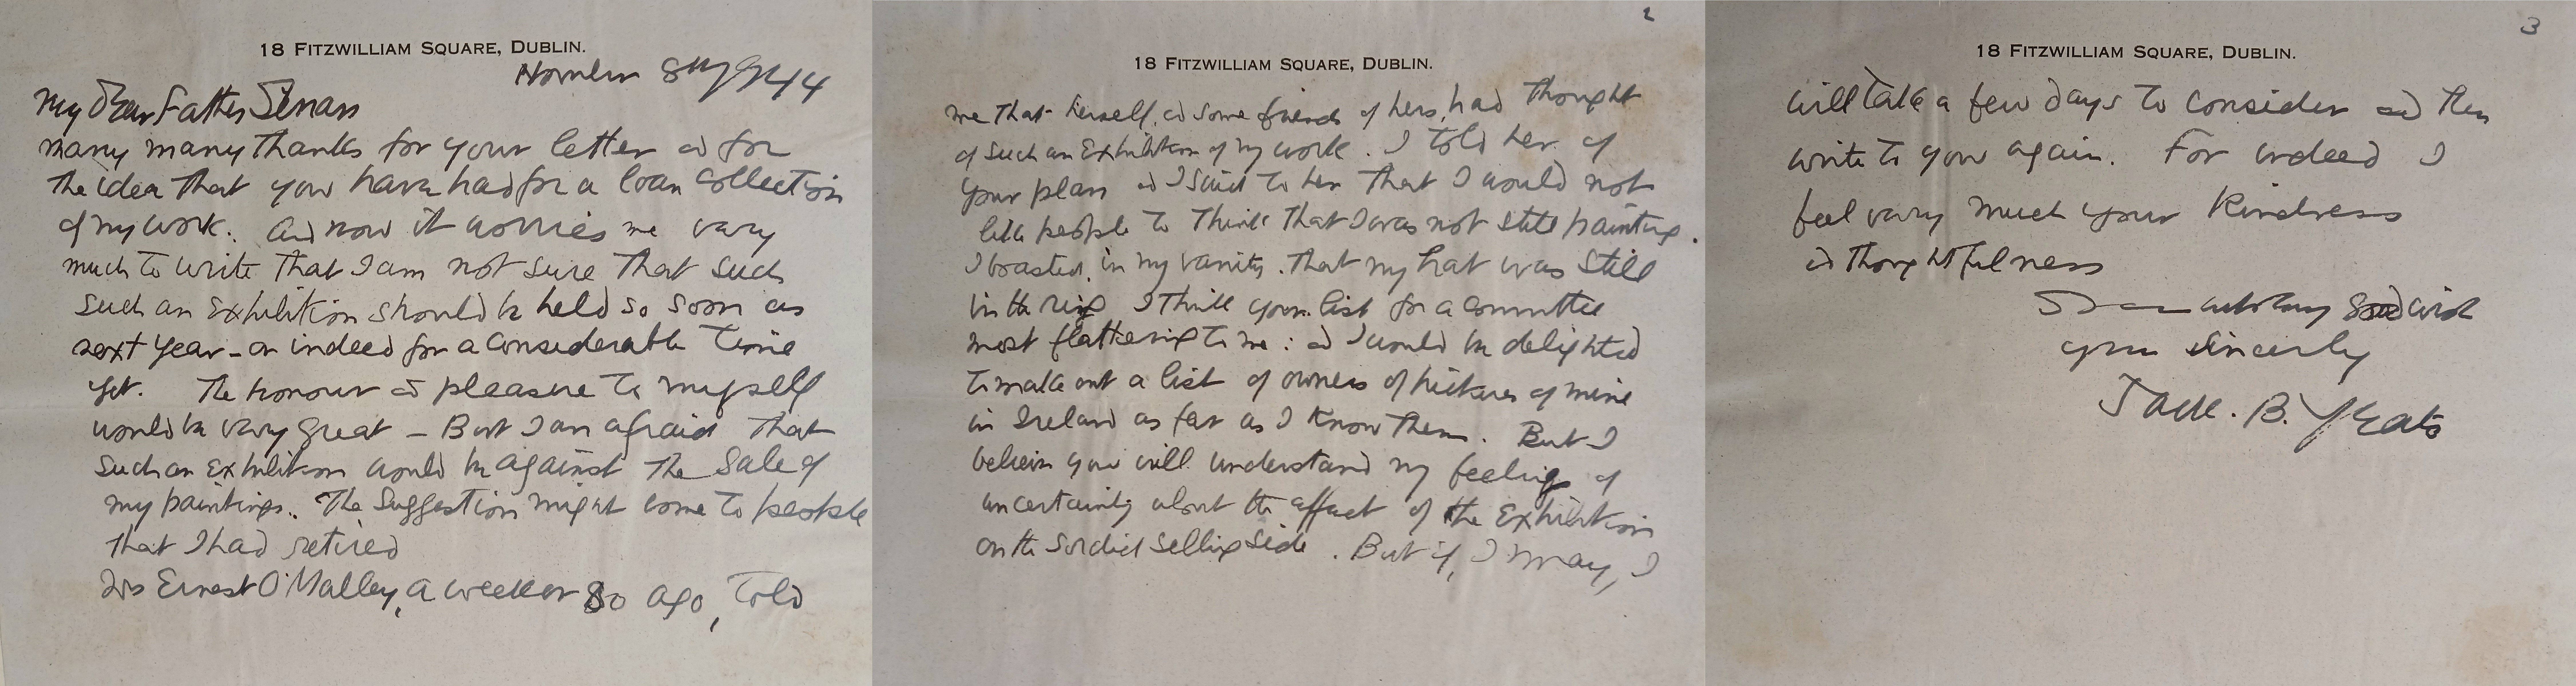 18 FITZWILLIAM SQUARE, DUBLIN.
November 8th 1944
My Dear Father Senan
many many thanks for your letter and for
the idea that you have had for a loan collection
of my work. And now it worries me very
much to write that I am not sure that such
such an Exhibition should be held so soon as
next year - or indeed for a considerable time
yet. The honour and pleasure to myself
would be very great - But I am afraid that
such an exhibition would be against the sale of
my paintings. The Suggestion might come to people
that I had retired
Mrs Ernest O'Malley, a week or so ago, told
2
18 FITZWILLIAM SQUARE, DUBLIN.
me that herself, and some friends of hers, had thought
of such an Exhibition of my work. I told her of
your plan and I said to her that I would not
like people to think that I was not still painting.
I boasted, in my vanity, that my hat was still
in the ring I think your list for a committee
most flattering to me: and I would be delighted
to make out a list of owners of pictures of mine
in Ireland as far as I know them. But I
believe you will understand my feeling of
uncertainty about the affect of the Exhibition
on the sordid selling side. But if, I may, I
3
18 FITZWILLIAM SQUARE, DUBLIN.
will take a few days to consider and then
write to you again. For indeed I
feel very much your kindness
and thoughtfulness
with every good wish
yours sincerely
Jack. B. Yeats